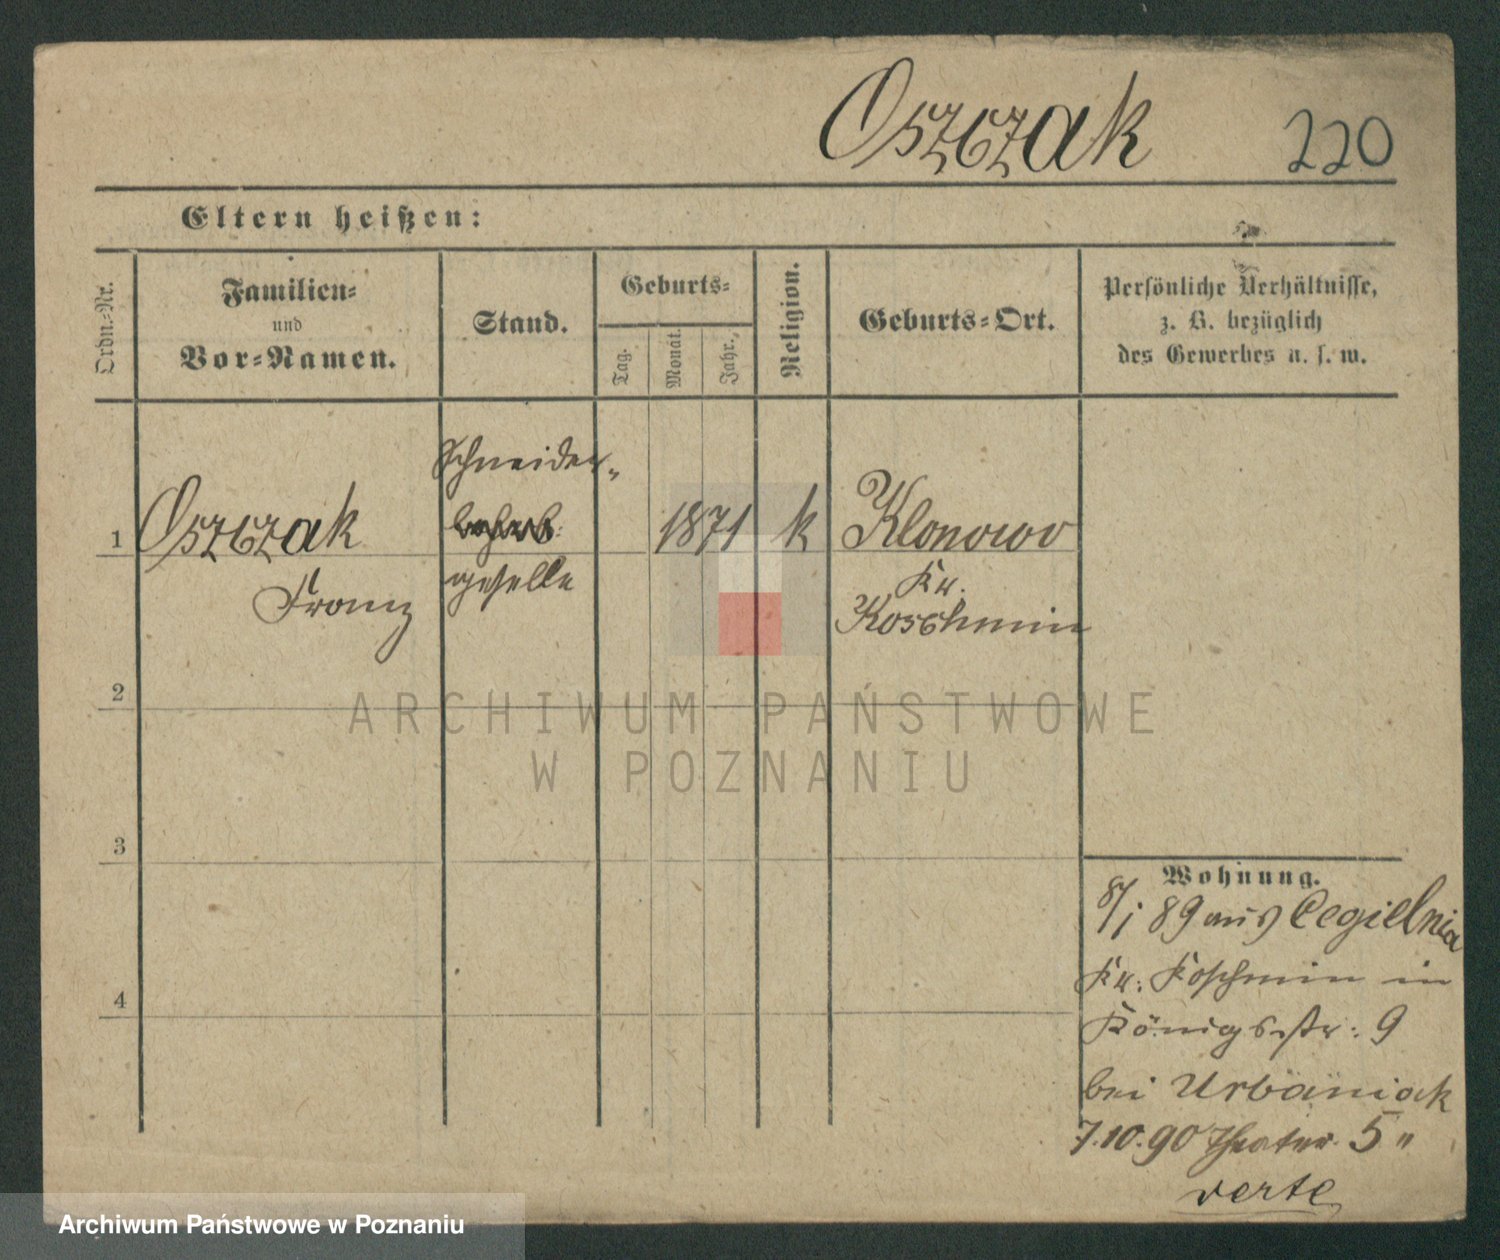 Oszczak 220
Eltern heißen:
Ordn.-Nr.
Familien-
und
Vor-Namen.
Stand.
Geburts-
Tag.
Monat.
Jahr.
Religion.
Geburts-Ort.
Persönliche Verhältnisse,
z. B. bezüglich
des Gewerbes u. s. w.
Schneider-
1 Oszczak 1871 k Klonowo
geselle
Kr.
Franz
Koschmin
2
ARCHIWUM PAŃSTWOWE
W POZNANIU
3
Wohnung.
8/1 89 aus Cegielnia
Kr. Koschmin in
Königsstr: 9
bei Urbaniak
7.10.90 Theater. 5 "
verte
4
Archiwum Państwowe w Poznaniu